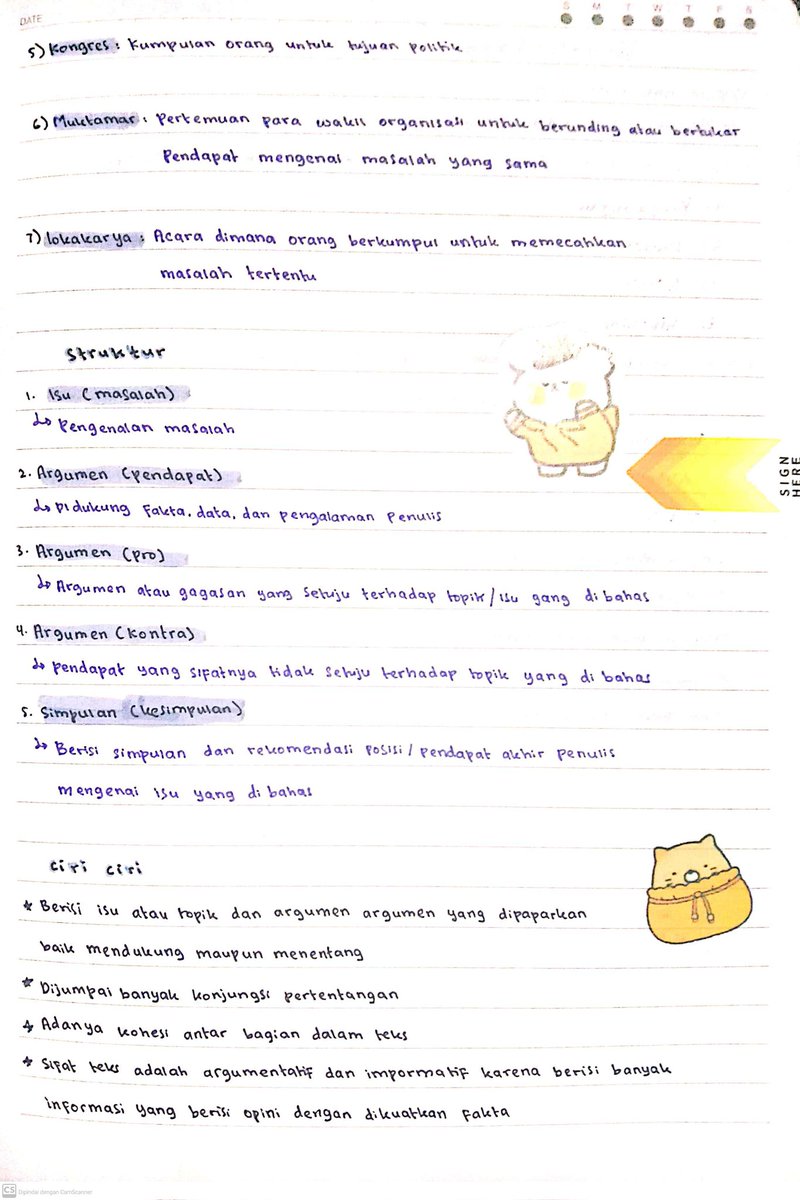 DATE
S M T W T F S
5) Kongres : Kumpulan orang untuk tujuan politik
6) Muktamar : Pertemuan para wakil organisasi untuk berunding atau bertukar
Pendapat mengenai masalah yang sama
7) lokakarya : Acara dimana orang berkumpul untuk memecahkan
masalah tertentu
Struktur
1. Isu (masalah)
↳ Pengenalan masalah
SIGN
HERE
2. Argumen (pendapat)
↳ Didukung fakta, data, dan pengalaman penulis
3. Argumen (pro)
↳ Argumen atau gagasan yang setuju terhadap topik/isu yang di bahas
4. Argumen (kontra)
↳ pendapat yang sifatnya tidak setuju terhadap topik yang di bahas
5. Simpulan (kesimpulan)
↳ Berisi simpulan dan rekomendasi posisi/pendapat akhir penulis
mengenai isu yang di bahas
Ciri ciri
* Berisi isu atau topik dan argumen argumen yang dipaparkan
baik mendukung maupun menentang
* Dijumpai banyak konjungsi pertentangan
* Adanya kohesi antar bagian dalam teks
* Sifat teks adalah argumentatif dan impormatif karena berisi banyak
informasi yang berisi opini dengan dikuatkan fakta
CS Dipindai dengan CamScanner